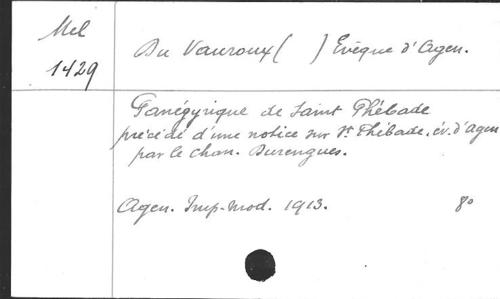 Mel
1429
Du Vauroux ( ) Evêque d'Agen.
Panégyrique de Saint Phébade
précédé d'une notice sur St Phébade, év. d'Agen
par le chan. Durengues.
Agen. Imp. Mod. 1913. 8o